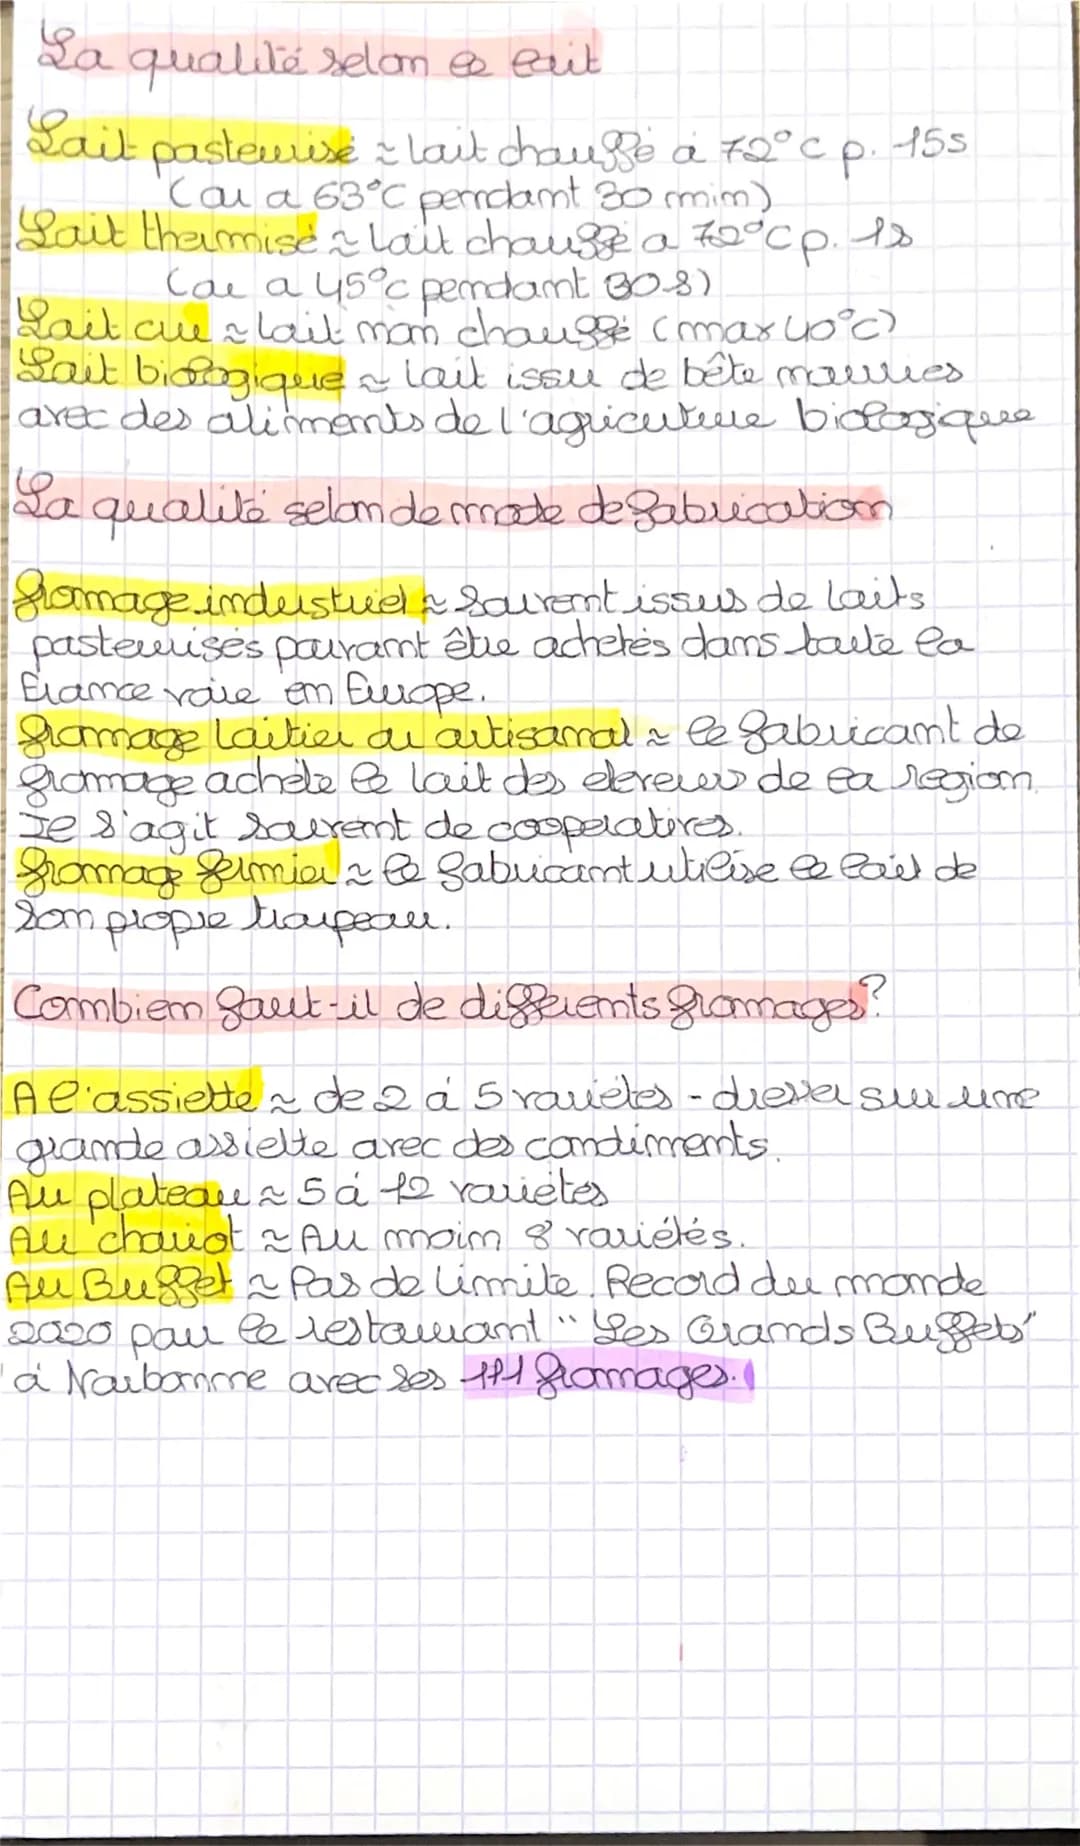 La qualité selon le lait
Lait pasteurisé ~ lait chauffé à 72°C p. 15s
(ou a 63°C pendant 30 min)
Lait thermisé ~ lait chauffé a 72°C p. 1s
(ou a 45°C pendant 30s)
Lait cru ~ lait non chauffé (max 40°C)
Lait biologique ~ lait issu de bête nourries
avec des aliments de l'agriculture biologique
La qualité selon de mode de fabrication
fromage industriel ~ Souvent issus de laits
pasteurisés pouvant être achetés dans toute la
France voie en Europe.
fromage laitier ou artisanal ~ le fabricant de
fromage achète le lait des eleveurs de la region.
Il s'agit souvent de cooperatives.
fromage fermier ~ le fabricant utilise le lait de
son propre troupeau.
Combien faut-il de différents fromages?
A l'assiette ~ de 2 à 5 variétés - dresser sur une
grande assiette avec des condiments.
Au plateau ~ 5 à 12 variétés
Au chariot ~ Au moin 8 variétés.
Au Buffet ~ Pas de limite. Record du monde
2020 pour le restaurant "Les Grands Buffets"
à Narbonne avec ses 111 fromages.